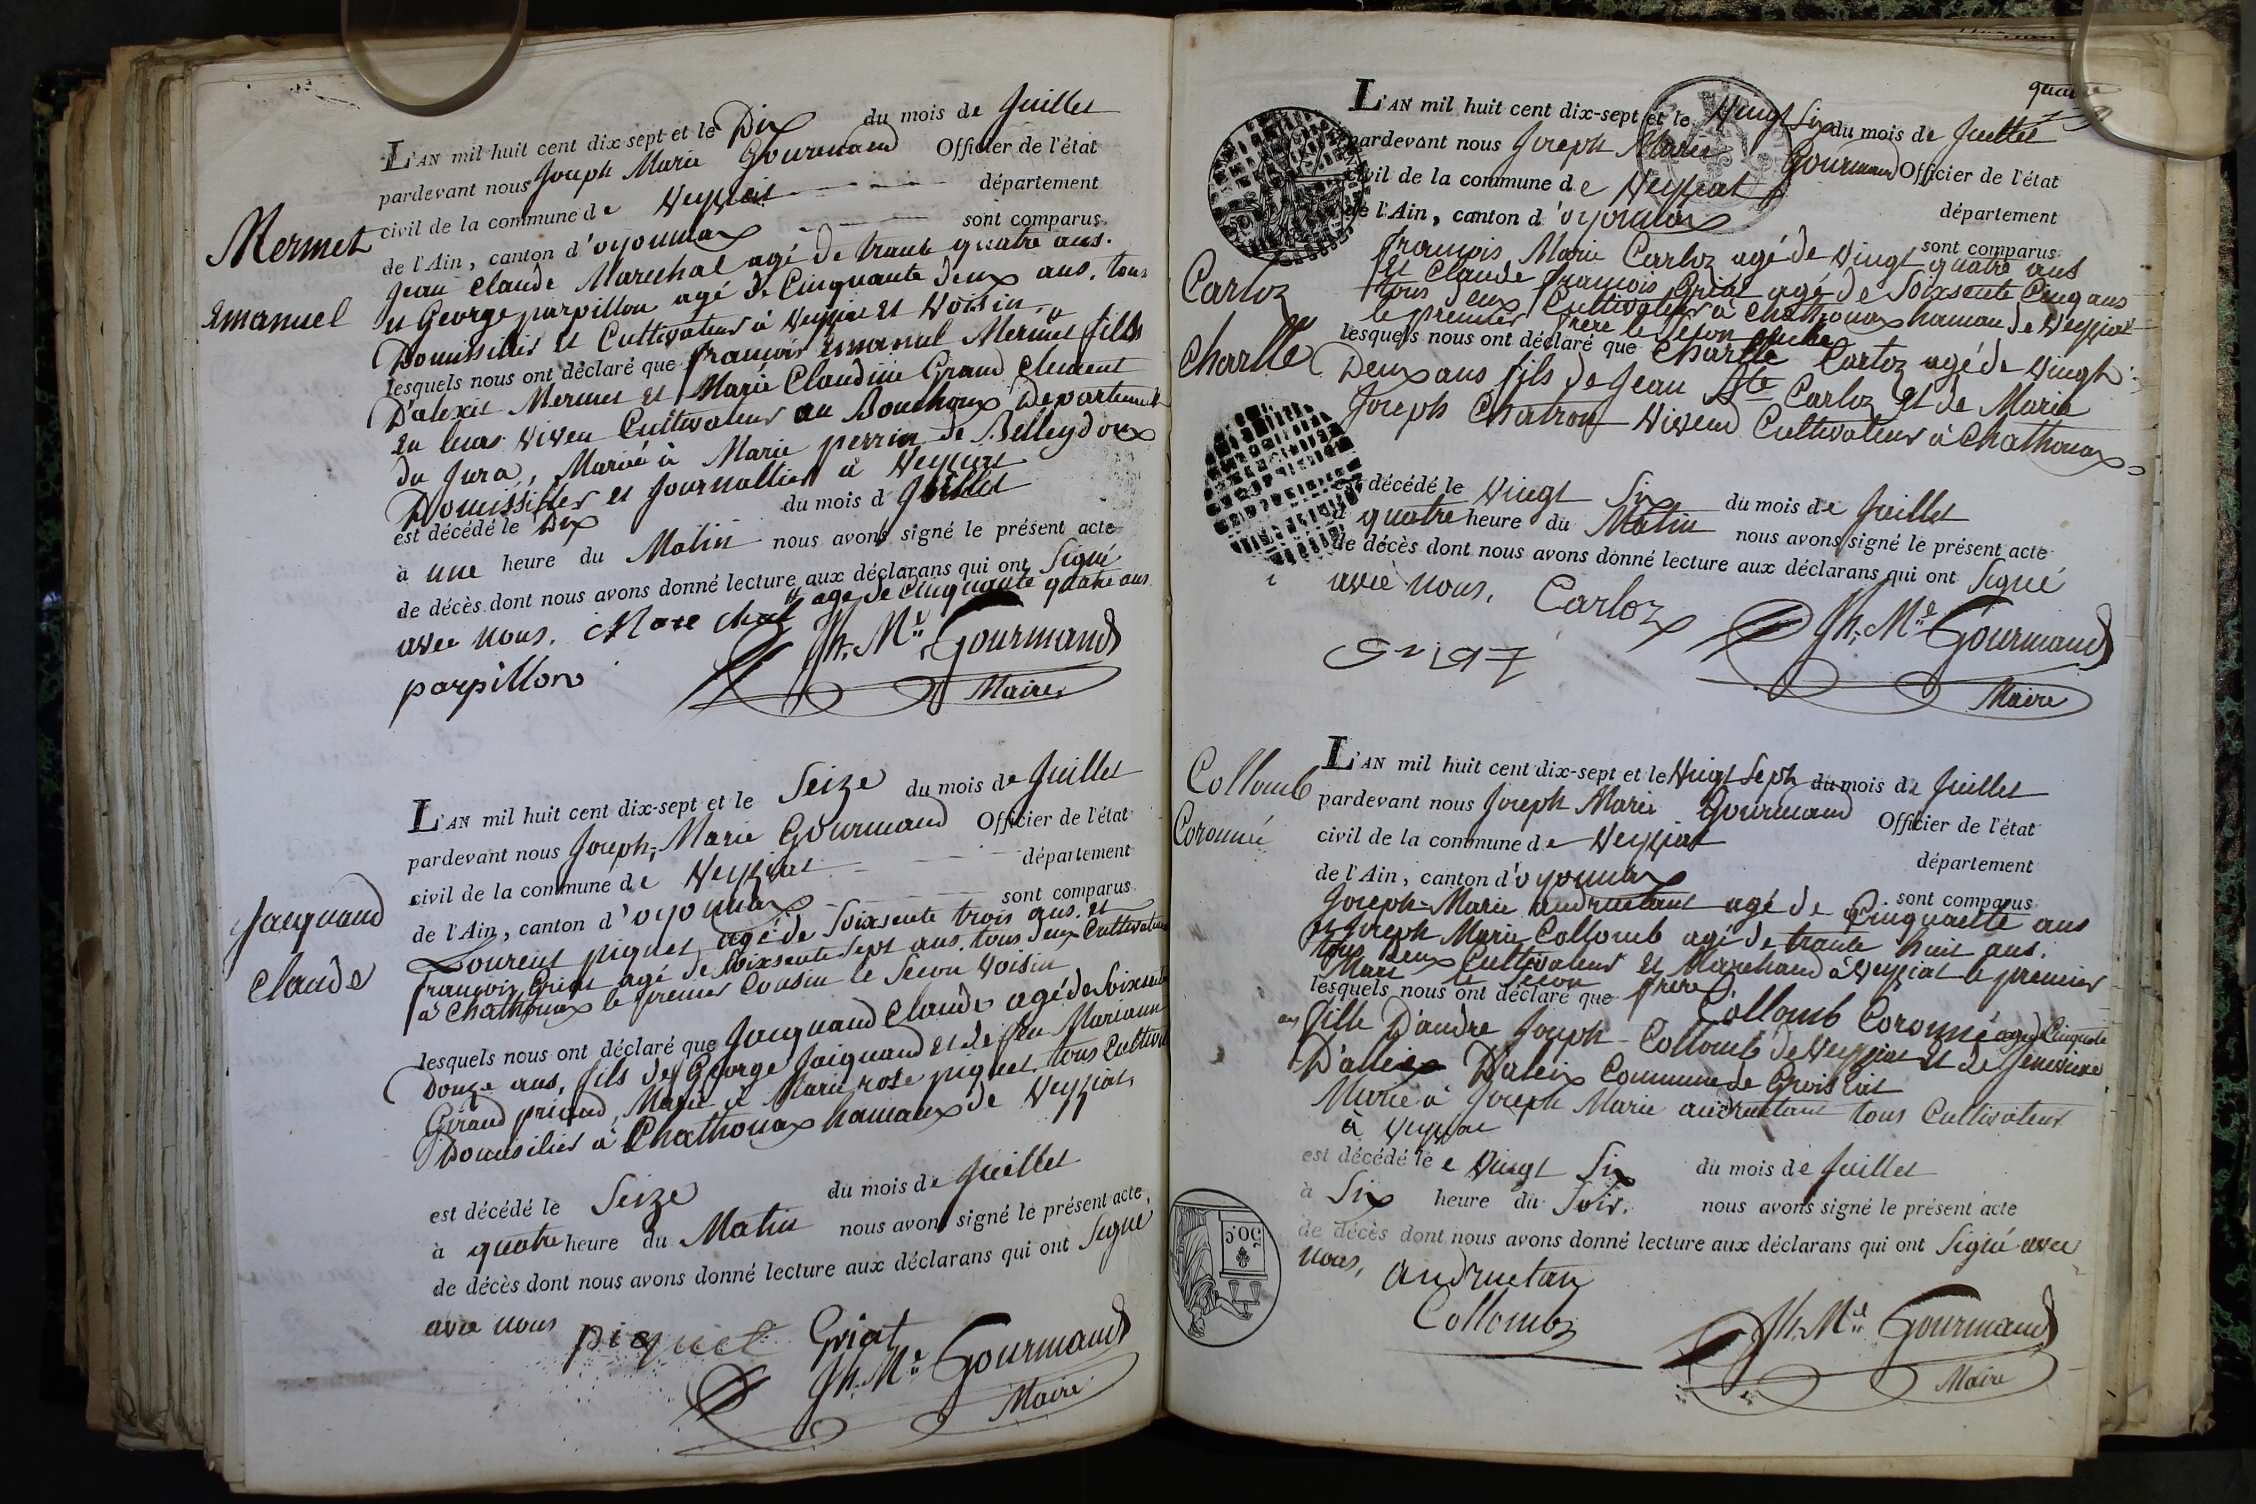 Mermet
Emanuel
L'AN mil huit cent dix-sept et le Dix du mois de Juillet
pardevant nous Joseph Marie Gourmand Officier de l'état
civil de la commune de Veyziat département
de l'Ain, canton d'oyonnax sont comparus
Jean Claude Marechal agé de trante quatre ans.
et George parpillon agé de Cinquante deux ans. tous
Domissiliés et Cultivateur à Veyziat et Voisin
lesquels nous ont déclaré que françois Emanuel Mermet fills
D'alexis Mermet et Marie Claudine Grand clement
En leurs viven Cultivateur au Bouchoux Département
du Jura, Marié à Marie perrin de Belleydoux
Domissilier et Journallier à Veyziat
est décédé le Dix du mois d Juillet
à une heure du Matin nous avons signé le présent acte
de décès dont nous avons donné lecture aux déclarans qui ont Signé
avec nous. # agé de Cinquante quatre ans
Mare chal Jh. Mie Gourmand
parpillon Maire
Jacquand
Claude
L'AN mil huit cent dix-sept et le Seize du mois de Juillet
pardevant nous Joseph, Marie Gourmand Officier de l'état
civil de la commune de Veyziat département
de l'Ain, canton d'oyonnax sont comparus
Lourent piquet agé de Soixsente trois ans. et
françois Griat agé de Soixsente Sept ans. tous deux Cultivateur
à Chathonax le premier Cousin le Secon Voisin
lesquels nous ont déclaré que Jacquand Claude agé de Soixsente
Douze ans, fils de George Jaiquand et de feu Marianne
Girand priand, Marié à Marie rose piquet. tous Cultiva
Domisilier à Chathonax hamaux de Veyziat,
est décédé le Seize du mois de Juillet
à quatre heure du Matin nous avons signé le présent acte
de décès dont nous avons donné lecture aux déclarans qui ont Signé
avec nous
piquet Griat
Jh. Mie Gourmand
Maire
quatre
Carloz
Charlle
L'AN mil huit cent dix-sept et le Vingt Six du mois de Juillet
pardevant nous Joseph Marie Gourmand Officier de l'état
civil de la commune de Veyziat département
de l'Ain, canton d'oyonnax sont comparus
françois Marie Carloz agé de Vingt quatre ans
et Claude françois Griat agé de Soixsente Cinq ans
tous deux Cultivateur à Chathonax hamau de Veyziat
le premier frere le Secon oncle
lesquels nous ont déclaré que Charlle Carloz agé de Vingt
Deux ans fils de Jean Bte Carloz et de Marie
Joseph Chatron Vivend Cultivateur à Chathonax
est décédé le Vingt Six du mois de Juillet
à quatre heure du Matin nous avons signé le présent acte
de décès dont nous avons donné lecture aux déclarans qui ont Signé
avec nous, Carloz Jh. Mie Gourmand
Griat Maire
Collomb
Coronné
L'AN mil huit cent dix-sept et le Vingt Sept du mois de Juillet
pardevant nous Joseph Marie Gourmand Officier de l'état
civil de la commune de Veyziat département
de l'Ain, canton d'oyonnax sont comparus
Joseph-Marie andruetant agé de Cinquante ans
et Joseph Marie Collomb agé de trante huit ans.
tous deux Cultivateur et Marchand à Veyziat le premier
Mari le Secon frere
lesquels nous ont déclaré que Collomb Coronné agé de Cinquante
ans fille D'andre Joseph Collomb de Veyziat et de Jenevieve
D'alex Daleix Commune de Groissiat
Marié à Joseph Marie andruetant tous Cultivateur
à Veyziat
est décédé le e Vingt Six du mois de Juillet
à Six heure du Soir. nous avons signé le présent acte
de décès dont nous avons donné lecture aux déclarans qui ont Signé avec
nous, andruetan
Collomb Jh. Mie Gourmand
Maire
50 c